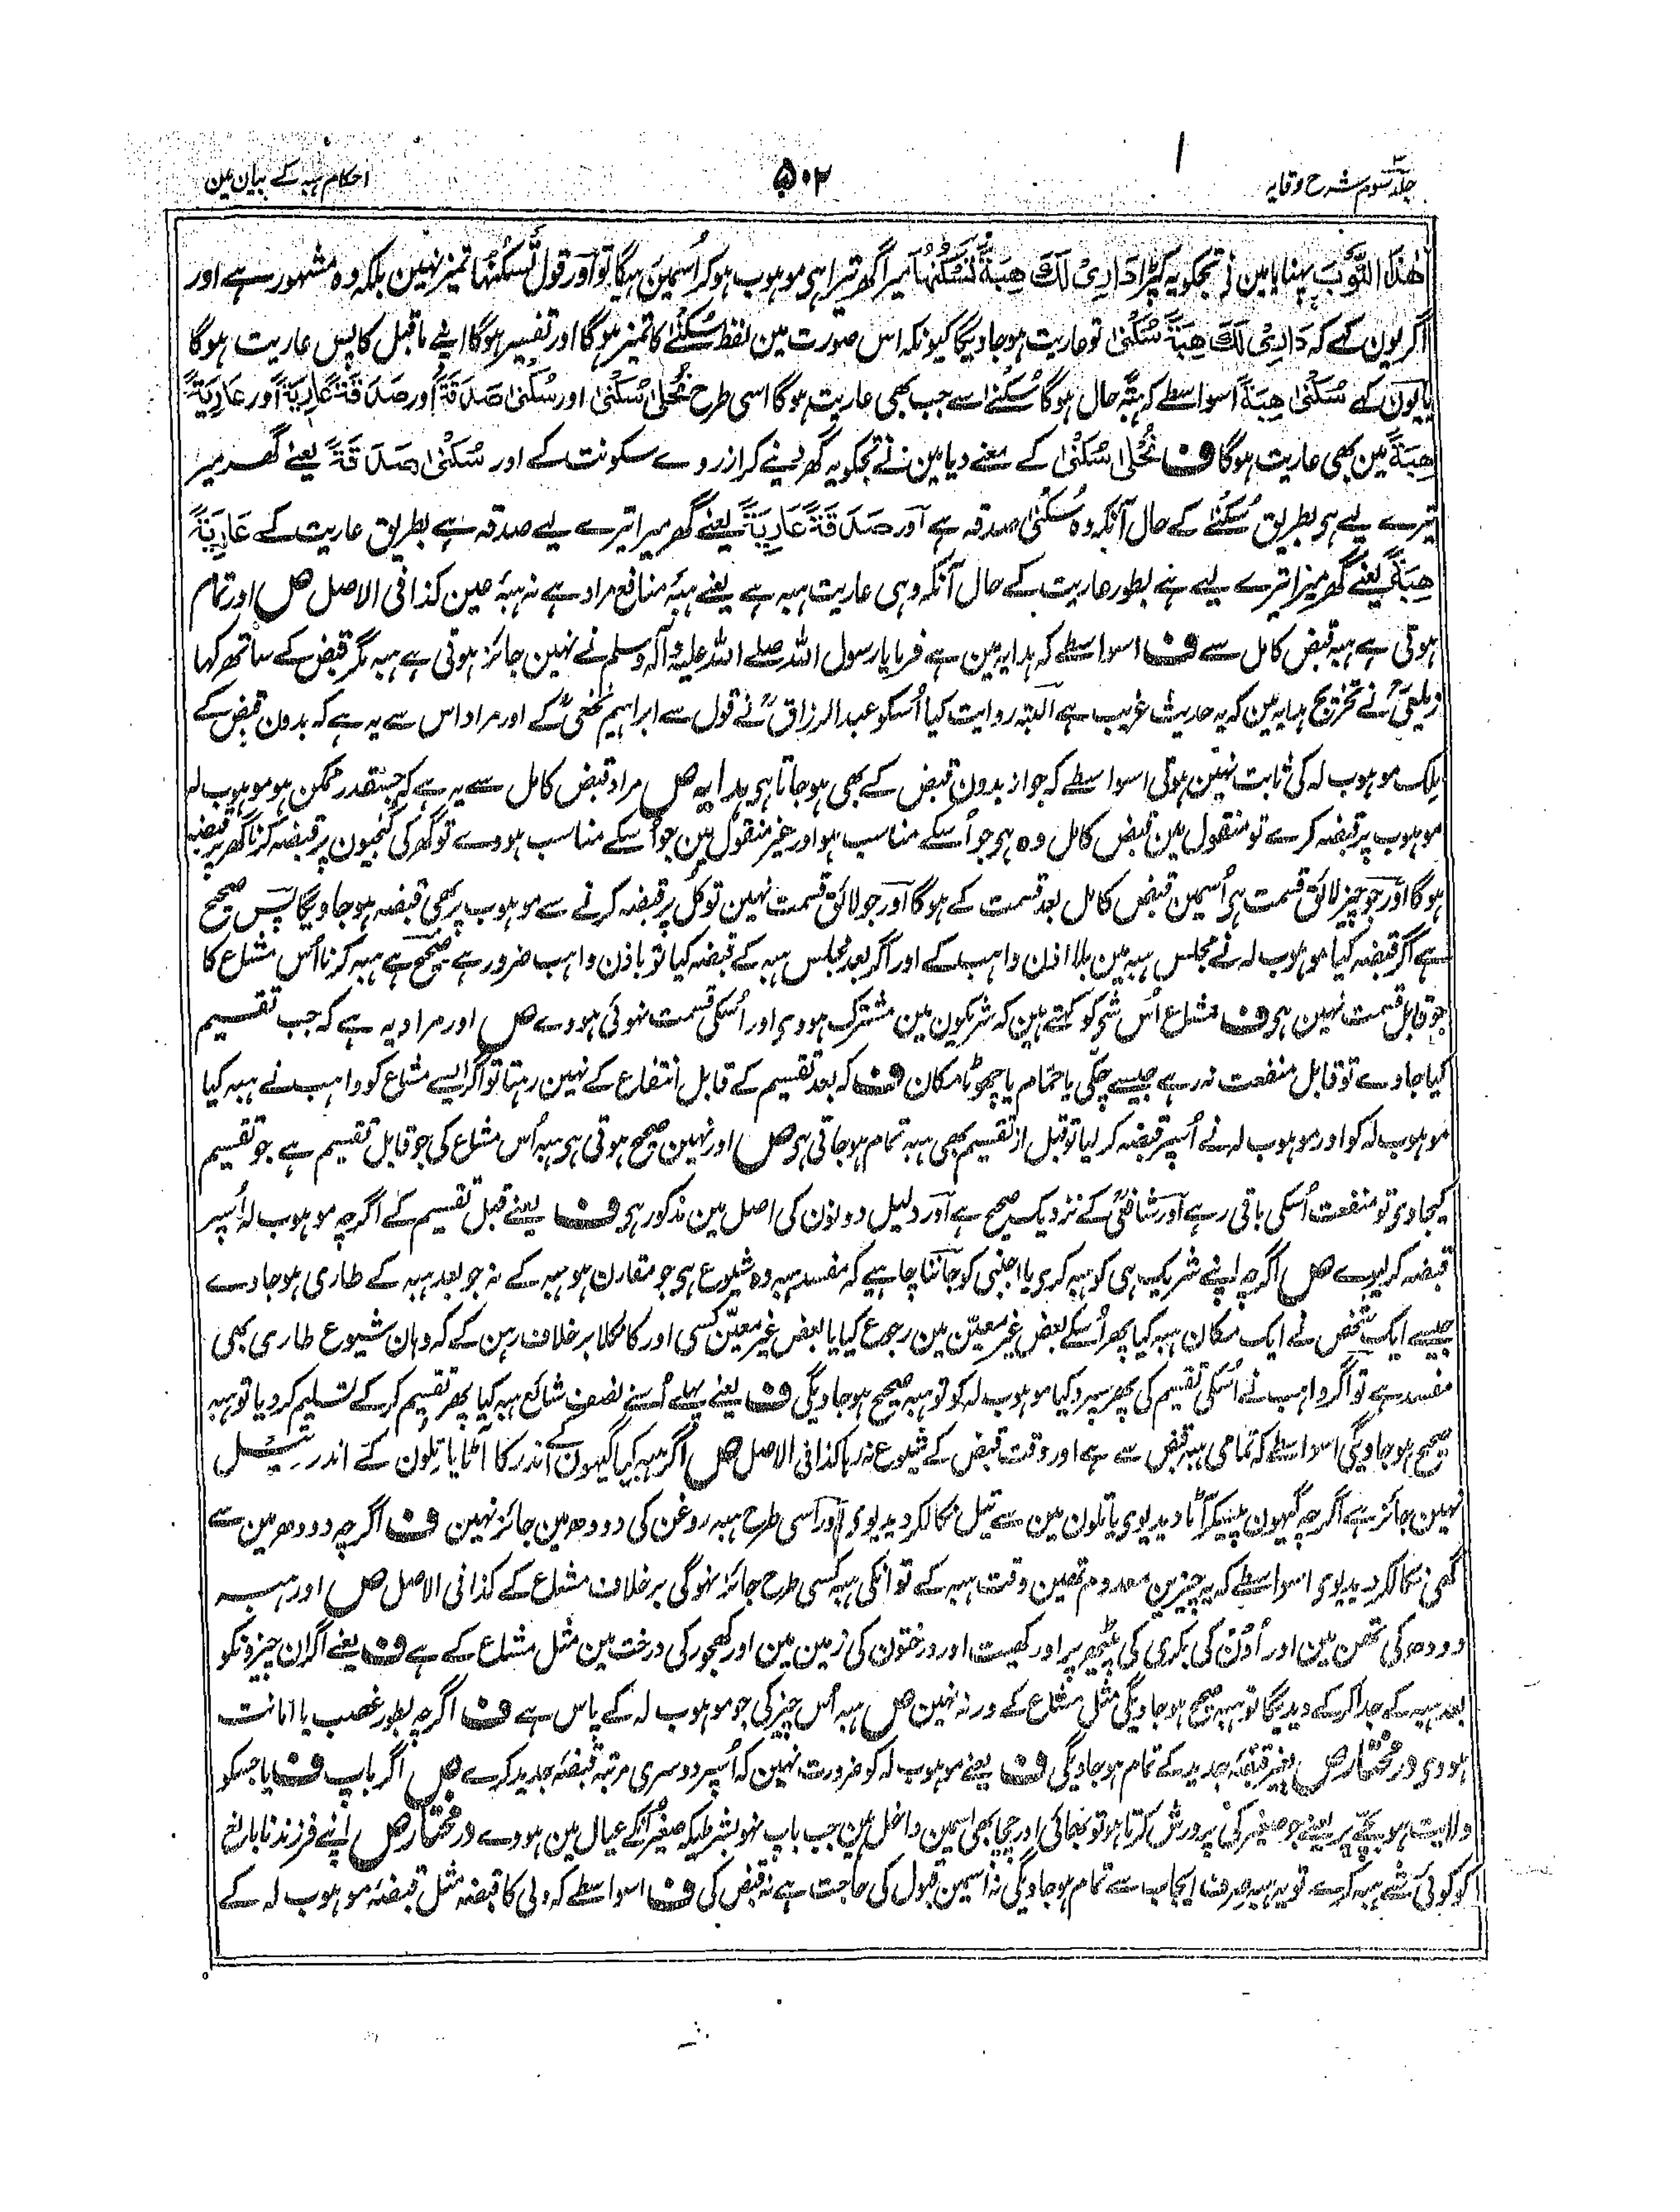 جلد سوم شرح وقایہ
۵۰۲
احکام ہبہ کے بیان مین
هٰذَا الثَّوْبَ پہنایا مین نے تجکو یہ کپڑا دَارِیْ لَكَ هِبَةً تَسْكُنُهَا میرا گھر تیرا ہی موہوب ہوکر اُسمین رہیگا تو اور قول تَسْكُنُهَا تمیز نہین بلکہ وہ مشہور ہے اور
اگر یون کہے کہ دَارِیْ لَكَ هِبَةً سُكْنٰی تو عاریت ہوجاویگا کیونکہ اس صورت مین لفظ سُکنٰے کا تمیز ہوگا اور تفسیر ہوگا اپنے ماقبل کا پس عاریت ہوگا
یا یون کہے سُكْنٰی هِبَةً اسواسطے کہ ہبۃً حال ہوگا سُکنٰے سے جب بھی عاریت ہوگا اسی طرح نُحْلٰی سُكْنٰی اور سُكْنٰی صَدَقَةً اور صَدَقَةً عَارِيَةً اور عَارِيَةً
هِبَةً مین بھی عاریت ہوگا ف نُحْلٰی سُكْنٰی کے معنے دیا مین نے تجکو یہ گھر دینے کر ازروے سکونت کے اور سُكْنٰی صَدَقَةً یعنے گھر میر
تیرے لیے ہی بطریق سُکنٰے کے حال آنکہ وہ سُکنٰی صدقہ ہے اور صَدَقَةً عَارِيَةً یعنے گھر میرا تیرے لیے صدقہ ہے بطریق عاریت کے عَارِيَةً
هِبَةً یعنے گھر میرا تیرے لیے ہے بطور عاریت کے حال آنکہ وہی عاریت ہبہ ہے یعنے ہبۂ منافع مراد ہے نہ ہبۂ عین کذا فی الاصل ص اور تمام
ہوتی ہے ہبہ قبض کامل سے ف اسواسطے کہ ہدایہ مین ہے فرمایا رسول اللہ صلے اللہ علیہ وآلہ وسلم نے نہین جائز ہوتی ہے ہبہ مگر قبض کے ساتھ کہا
زیلعیؒ نے تخریج ہدایہ مین کہ یہ حدیث غریب ہے البتہ روایت کیا اُسکو عبدالرزاقؒ نے قول سے ابراہیم نخعیؒ کے اور مراد اس سے یہ ہے کہ بدون قبض کے
ملک موہوب لہ کی ثابت نہین ہوتی اسواسطے کہ جواز بدون قبض کے بھی ہوجاتا ہی ہدایہ ص مراد قبض کامل سے یہ ہے کہ جسقدر ممکن ہو موہوب لہ
موہوب پر قبضہ کرے تو منقول مین قبض کامل وہ ہی جو اُسکے مناسب ہو اور غیر منقول مین جو اُسکے مناسب ہووے تو گھر کی کنجیون پر قبضہ کرنا گھر پر قبضہ
ہوگا اور جو چیز لائق قسمت ہی اُسمین قبض کامل بعد قسمت کے ہوگا اور جو لائق قسمت نہین تو کل پر قبضہ کرنے سے موہوب پر بھی قبضہ ہوجاویگا پس صحیح
ہے اگر قبضہ کیا موہوب لہ نے مجلس ہبہ مین بلا اذن واہب کے اور اگر بعد مجلس ہبہ کے قبضہ کیا تو باذن واہب ضرور ہے صحیح ہے ہبہ کرنا اُس مشاع کا
جو قابل قسمت نہین ہی ف مشاع اُس شی کو کہتے ہین کہ شریکون مین مشترک ہووے اور اُسکی قسمت نہوئی ہووے ص اور مراد یہ ہے کہ جب تقسیم
کیا جاوے تو قابل منفعت نہ رہے جیسے چکی یا حمام یا چھوٹا مکان ف کہ بعد تقسیم کے قابل انتفاع کے نہین رہتا تو اگر ایسے مشاع کو واہب نے ہبہ کیا
موہوب لہ کو اور موہوب لہ نے اُسپر قبضہ کرلیا تو قبل از تقسیم بھی ہبہ تمام ہوجاتی ہی ص اور نہین صحیح ہوتی ہی ہبہ اُس مشاع کی جو قابل تقسیم ہے جو تقسیم
کیجاوی تو منفعت اُسکی باقی رہے اور شافعیؒ کے نزدیک صحیح ہے اور دلیل دونون کی اصل مین مذکور ہی ف یعنے قبل تقسیم کے اگرچہ موہوب لہ اُسپر
قبضہ کرلیوے ص اگرچہ اپنے شریک ہی کو ہبہ کرے یا اجنبی کو جاننا چاہیے کہ مفسد ہبہ وہ شیوع ہی جو مقارن ہو ہبہ کے نہ جو بعد ہبہ کے طاری ہوجاوے
جیسے ایک شخص نے ایک مکان ہبہ کیا پھر اُسکے بعض غیر معیّن مین رجوع کیا یا بعض غیر معیّن کسی اور کا نکلا برخلاف رہن کے کہ وہان شیوع طاری بھی
مفسد ہے تو اگر واہب نے اُسکی تقسیم کی پھر سپرد کیا موہوب لہ کو تو ہبہ صحیح ہوجاویگی ف یعنے پہلے اُسنے نصف شائع ہبہ کیا پھر تقسیم کرکے تسلیم کردیا تو ہبہ
صحیح ہوجاویگی اسواسطے کہ تمامی ہبہ قبض سے ہے اور وقت قبض کے شیوع نہ رہا کذا فی الاصل ص اگر ہبہ کیا گیہون کے اندر کا آٹا یا تِلون کے اندر تیل
نہین جائز ہے اگرچہ گیہون پیسکر آٹا دیدیوی یا تلون مین سے تیل نکالکر دیدیوی اور اسی طرح ہبہ روغن کی دودھ مین جائز نہین ف اگرچہ دودھ مین سے
گھی نکالکر دیدیوی اسواسطے کہ یہ چیزین معدوم تھین وقت ہبہ کے تو انکی ہبہ کسی طرح جائز نہوگی برخلاف مشاع کے کذا فی الاصل ص اور ہبہ
دودھ کی تھن مین اور اُون کی بکری کی پیٹھ پر اور کھیت اور درختون کی زمین مین اور کھجور کی درخت مین مثل مشاع کے ہے ف یعنے اگر ان چیزونکو
بعد ہبہ کے جدا کرکے دیدیگا تو ہبہ صحیح ہوجاویگی مثل مشاع کے ورنہ نہین ص ہبہ اُس چیز کی جو موہوب لہ کے پاس ہے ف اگرچہ بطور غصب یا امانت
ہووے درمختار ص بغیر قبضۂ جدید کے تمام ہوجاویگی ف یعنے موہوب لہ کو ضرورت نہین کہ اُسپر دوسری مرتبہ قبضۂ جدید کرے ص اگر باپ ف یا جسکو
ولایت ہو بچّے پر یعنے جو صغیر کی پرورش کرتا ہو تو بھائی اور چچا بھی اسمین داخل ہین جب باپ نہو بشرطیکہ صغیر اُنکے عیال مین ہووے درمختار ص اپنے فرزند نابالغ
کو کوئی شے ہبہ کرے تو یہ ہبہ صرف ایجاب سے تمام ہوجاویگی نہ اسمین قبول کی حاجت ہے نہ قبض کی ف اسواسطے کہ ولی کا قبضہ مثل قبضۂ موہوب لہ کے